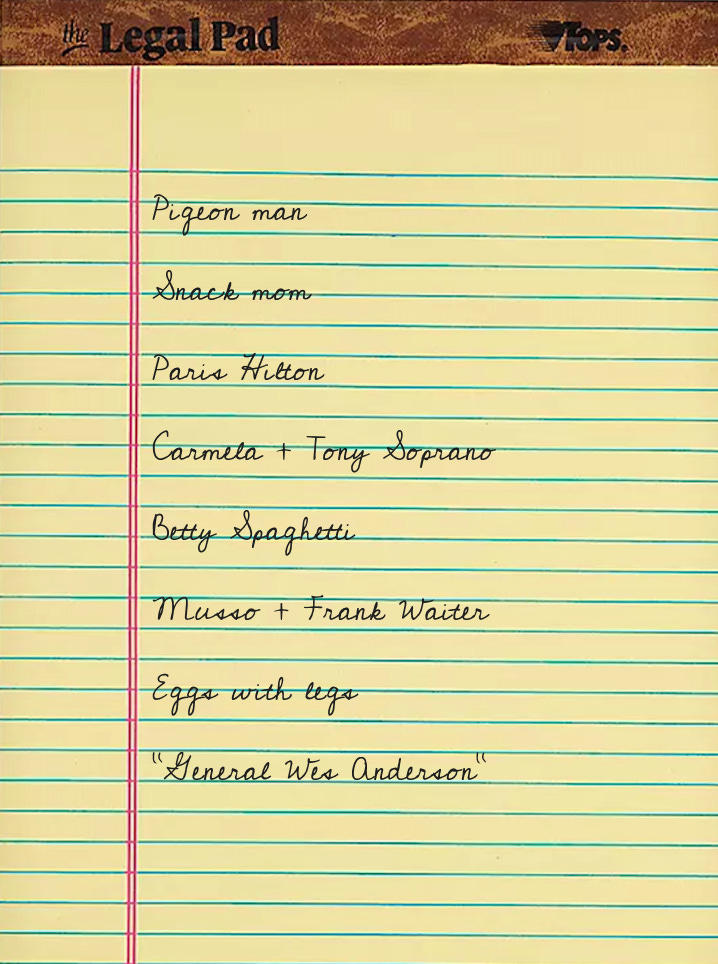 the Legal Pad TOPS.
Pigeon man
Snack mom
Paris Hilton
Carmela + Tony Soprano
Betty Spaghetti
Musso + Frank Waiter
Eggs with legs
"General Wes Anderson"